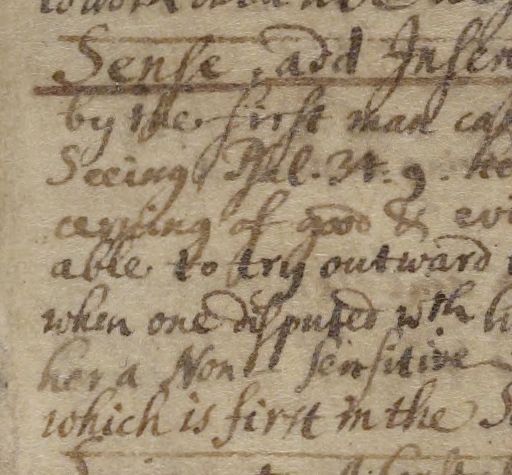 Sense, add Insen
by the first man ca
Seeing Psal. 34. 9. he
cerning of good & evi
able to try outward
when one disputed wth hi
her a Non sensitive
which is first in the S